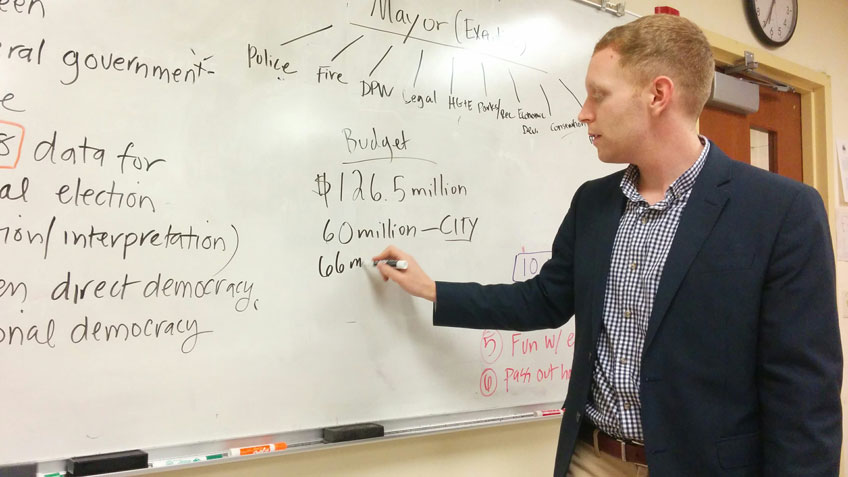 een
eral government
e
8 data for
al election
ion/interpretation)
en direct democracy,
onal democracy
Mayor (Exa.
Police
Fire
DPW
Legal
Parks/Rec
Economic Dev.
Conservation
Budget
$126.5 million
60 million - CITY
66 m
10
5 Fun w/ e
6 pass out h